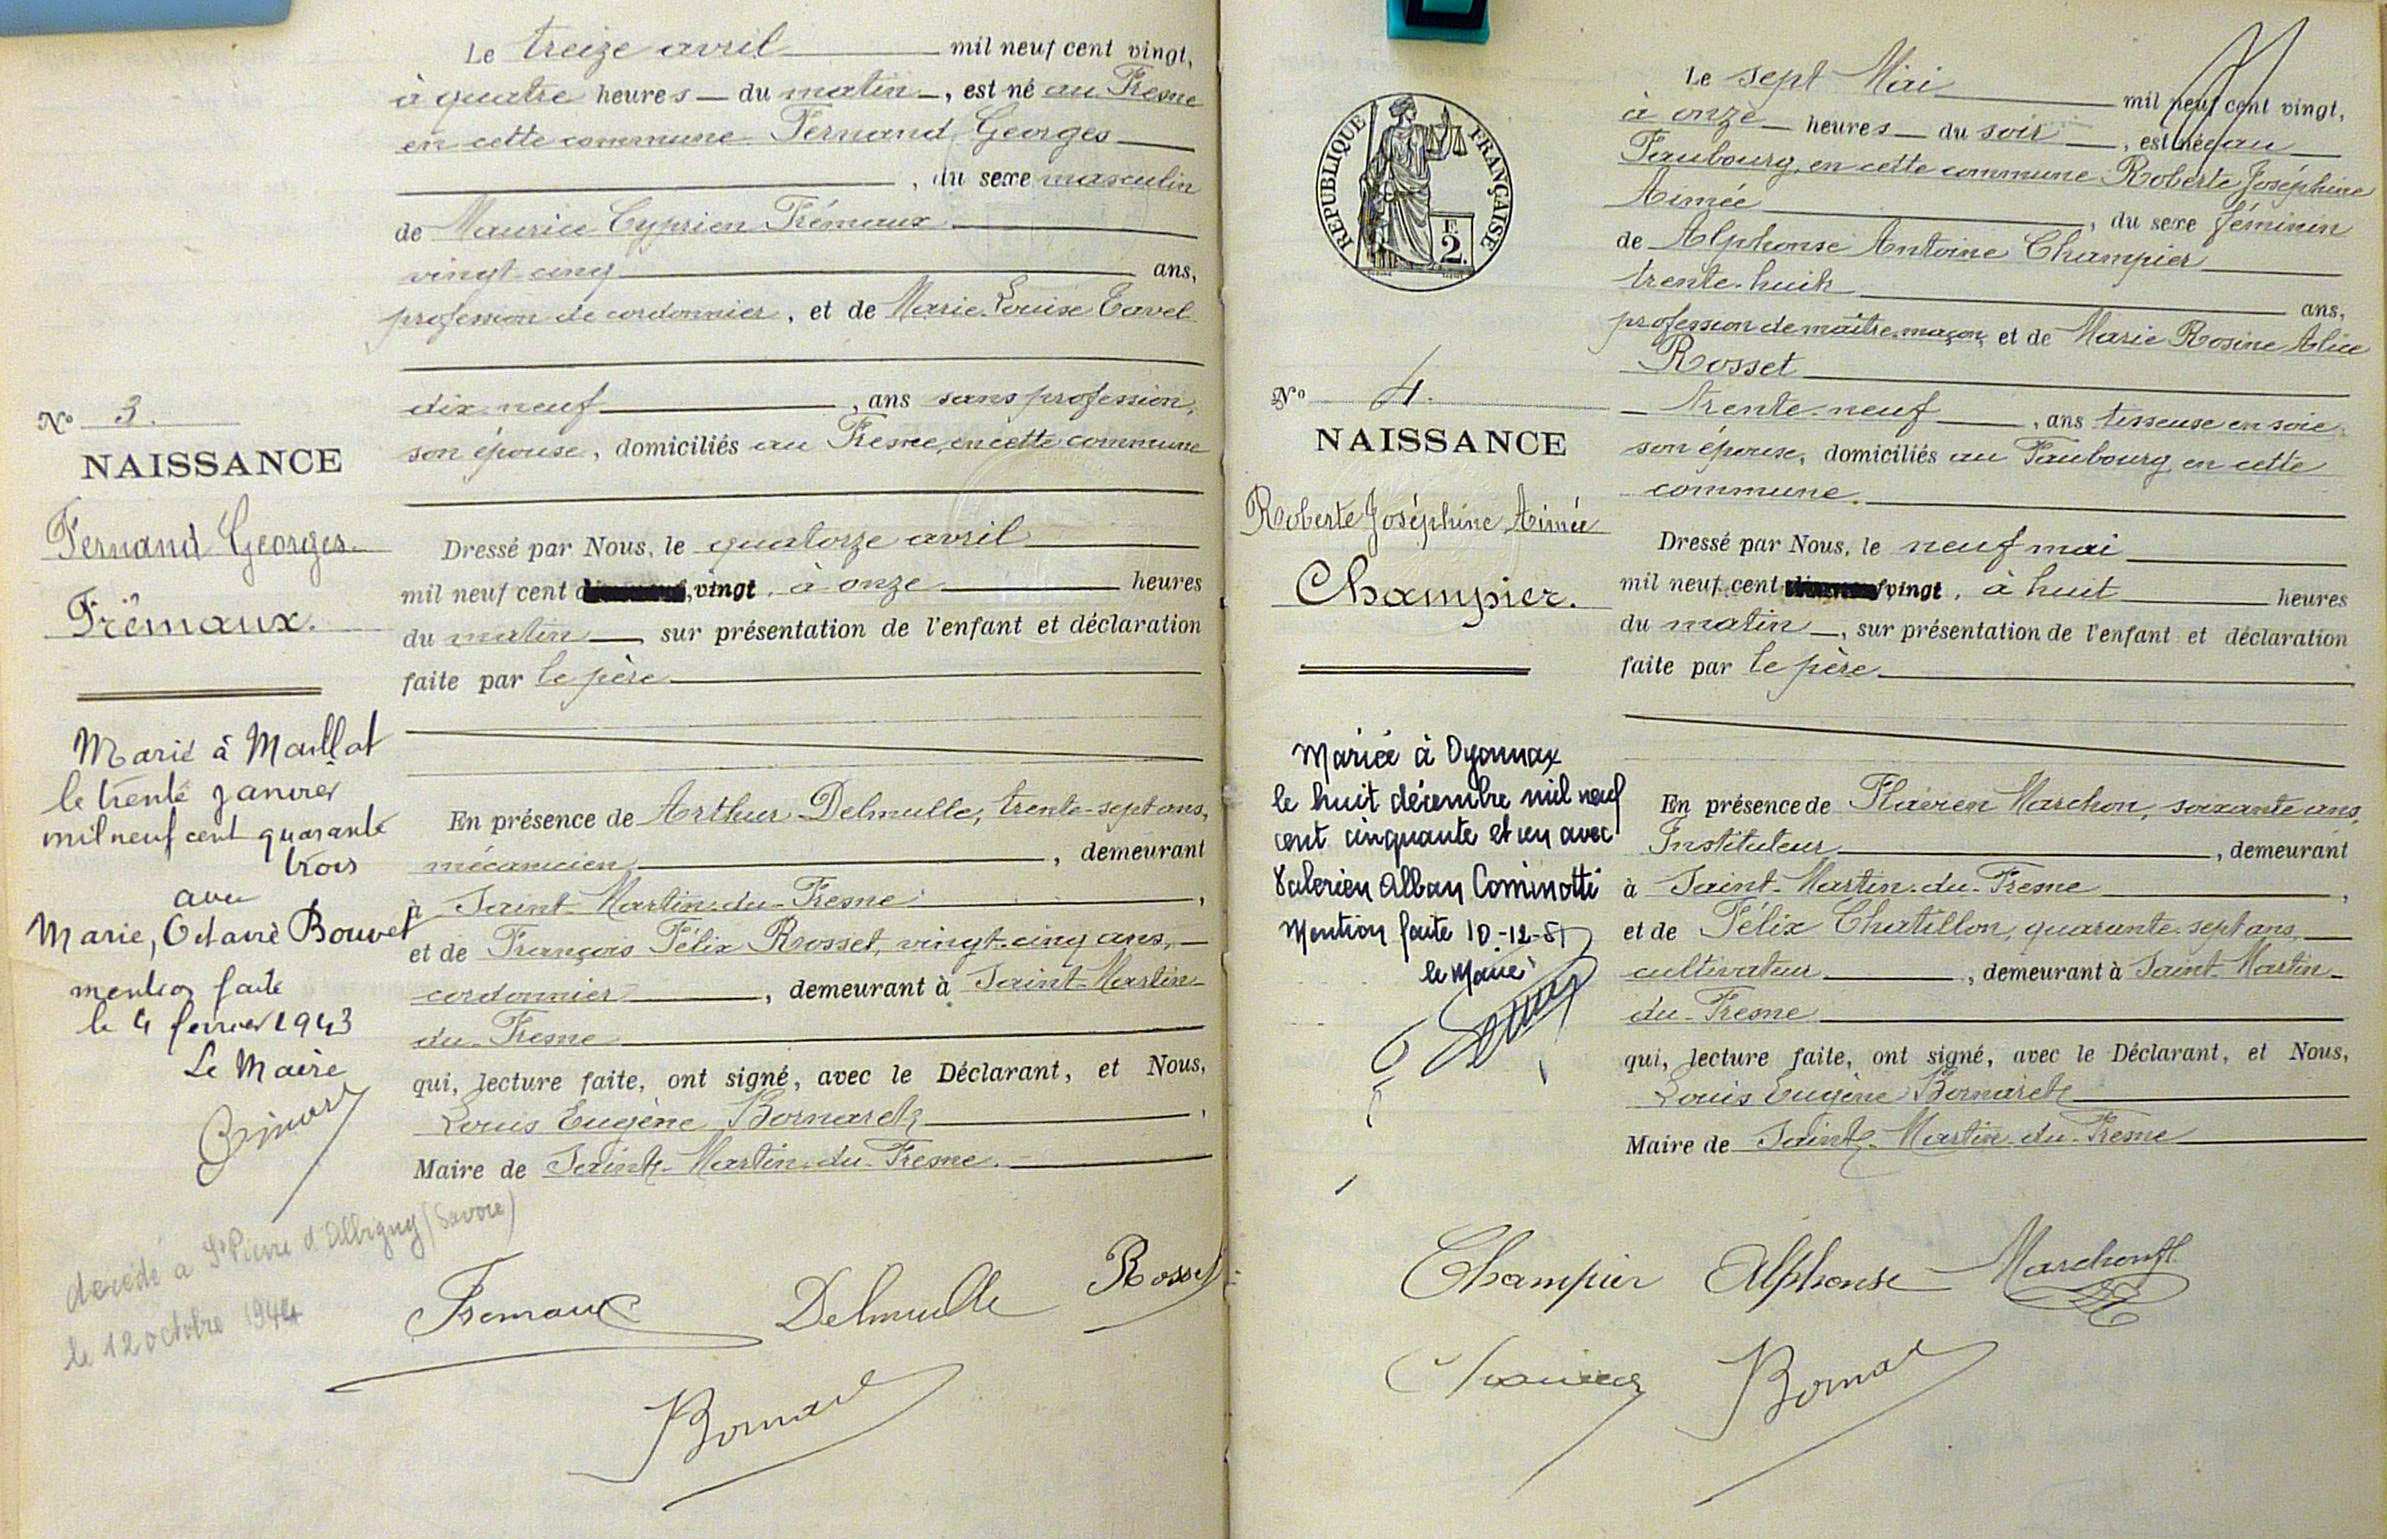 Le treize avril mil neuf cent vingt,
à quatre heures du matin, est né au Fresne
en cette commune Fernand Georges
, du sexe masculin
de Maurice Cyprien Frémaux
vingt-cinq ans,
profession de cordonnier, et de Marie Louise Tavel
dix-neuf, ans sans profession,
son épouse, domiciliés au Fresne, en cette commune
Dressé par Nous, le quatorze avril
mil neuf cent vingt, à onze heures
du matin, sur présentation de l'enfant et déclaration
faite par le père
En présence de Arthur Delmulle, trente-sept ans,
mécanicien, demeurant
à Saint-Martin-du-Fresne,
et de François Félix Rosset, vingt-cinq ans,
cordonnier, demeurant à Saint-Martin
du-Fresne
qui, lecture faite, ont signé, avec le Déclarant, et Nous,
Louis Eugène Bornarel,
Maire de Saint-Martin-du-Fresne.
Nº 3.
NAISSANCE
Fernand Georges
Frémaux.
Marié à Maillat
le trente janvier
mil neuf cent quarante
trois
avec
Marie, Octavie Bouvet
mention faite
le 4 février 1943
Le Maire
décédé à St Pierre d'Albigny (Savoie)
le 12 octobre 1944
Fremaux Delmulle Rosset
Bornarel
RÉPUBLIQUE FRANÇAISE
F.
2.
Le sept Mai mil neuf cent vingt,
à onze heures du soir, est née au
Faubourg, en cette commune Roberte Joséphine
Aimée, du sexe féminin
de Alphonse Antoine Champier
trente-huit ans,
profession de maître-maçon, et de Marie Rosine Alice
Rosset
trente-neuf, ans tisseuse en soie,
son épouse, domiciliés au Faubourg, en cette
commune.
Dressé par Nous, le neuf mai
mil neuf cent vingt, à huit heures
du matin, sur présentation de l'enfant et déclaration
faite par le père
En présence de Flavien Marchon, soixante ans,
Instituteur, demeurant
à Saint-Martin-du-Fresne,
et de Félix Chatillon, quarante-sept ans,
cultivateur, demeurant à Saint-Martin
du-Fresne
qui, lecture faite, ont signé, avec le Déclarant, et Nous,
Louis Eugène Bornarel
Maire de Saint-Martin-du-Fresne
Nº 4.
NAISSANCE
Roberte Joséphine Aimée
Champier.
Mariée à Oyonnax
le huit décembre mil neuf
cent cinquante et un avec
Valerien Alban Cominotti
Mention faite 10-12-51
le Maire
Champier Alphonse Marchon fl
Bornarel